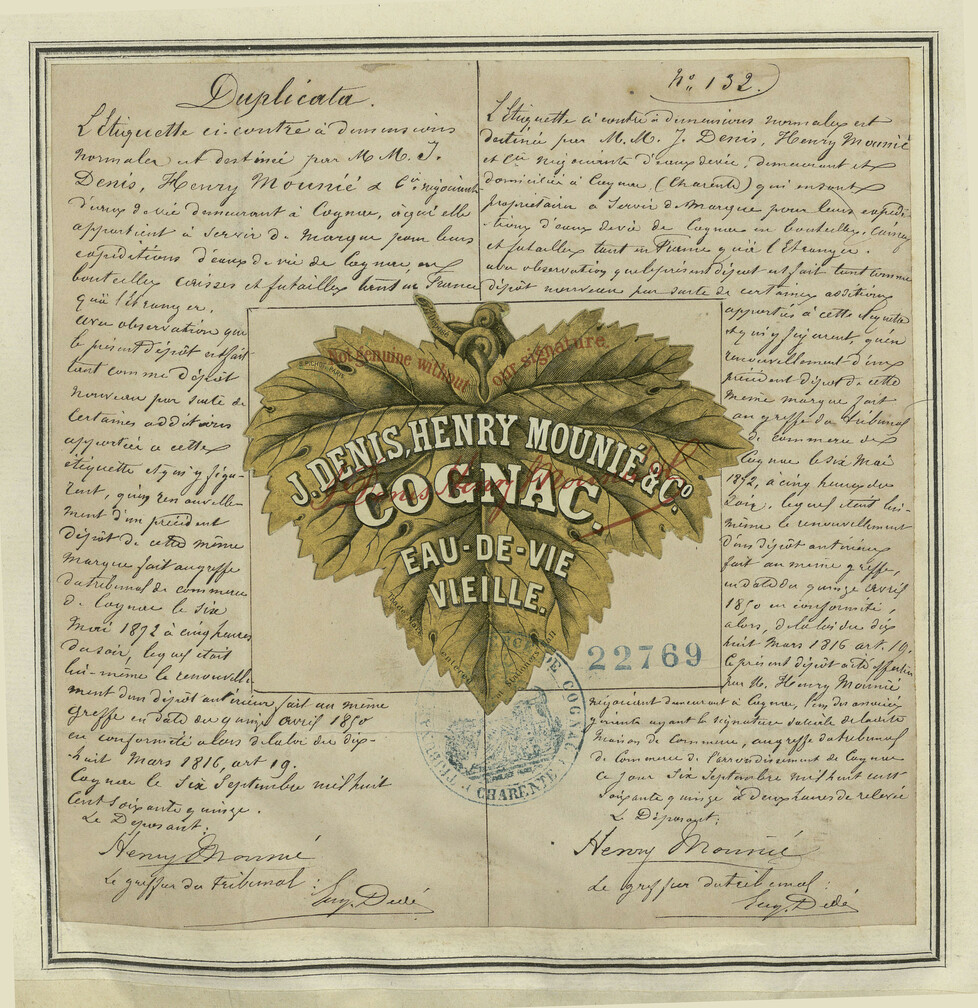 Duplicata.
L'Etiquette ci-contre à dimensions
normales est destinée par M.M. J.
Denis, Henry Mounié & Cie négociants
d'eaux de vie demeurant à Cognac, à qui elle
appartient à servir de Marque pour leurs
expéditions d'eaux de vie de Cognac en
bouteilles caisses et futailles tant en France
qu'à l'étranger.
avec observation que
le présent dépôt est fait
tant comme dépôt
nouveau par suite de
certaines additions
apportées à cette
étiquette et qui y figu-
rent, qu'en renouvelle-
ment d'un précédent
dépôt de cette même
marque fait au greffe
du tribunal de commerce
de Cognac le six
Mai 1872 à cinq heures
du soir, lequel était
lui-même le renouvelle-
ment d'un dépôt antérieur fait au même
greffe en date du quinze avril 1850
en conformité alors de la loi du dix-
huit Mars 1816, art 19.
Cognac le Six Septembre mil huit
cent soixante quinze.
Le Déposant:
Henry Mounié
Le greffier du tribunal:
Eug. Dedé
No. 132.
L'Etiquette ci contre à dimensions normales est
destinée par M.M. J. Denis, Henry Mounié
et Cie négociants d'eaux de vie, demeurant et
domiciliés à Cognac, (Charente) qui en sont
propriétaires à Servir de Marque pour leurs expédi-
tions d'eaux de vie de Cognac en bouteilles, caisses
et futailles tant en France qu'à l'Etranger.
avec observation que le présent dépôt est fait tant comme
dépôt nouveau par suite de certaines additions
apportées à cette étiquette
et qui y figurent, qu'en
renouvellement d'un
précédent dépôt de cette
même marque fait
au greffe du tribunal
de commerce de
Cognac le six Mai
1872, à cinq heures du
soir, lequel était lui-
même le renouvellement
d'un dépôt antérieur
fait au même greffe,
en date du quinze avril
1850 en conformité,
alors, de la loi du dix
huit Mars 1816 art. 19.
Le présent dépôt a été effectué
par M. Henry Mounié,
négociant demeurant à Cognac, l'un des associés
gérants ayant la signature sociale de la dite
Maison de Commerce, au greffe du tribunal
de Commerce de l'arrondissement de Cognac
ce jour Six Septembre mil huit cent
soixante quinze à deux heures de relevée
Le Déposant:
Henry Mounié
Le greffier du tribunal:
Eug. Dedé
Not genuine without our signature
J. DENIS, HENRY MOUNIÉ & Co
J. Denis Henry Mounié & Co
COGNAC.
EAU-DE-VIE
VIEILLE.
22769
DE COGNAC
CHARENTE